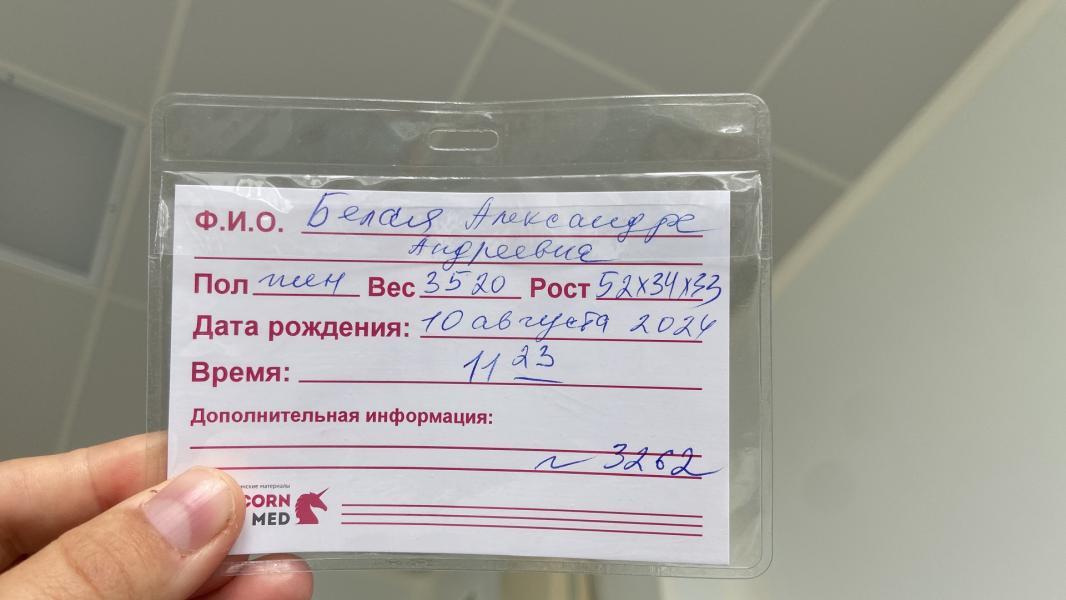 Ф.И.О. Белая Александра
Андреевна
Пол жен Вес 3520 Рост 52х34х33
Дата рождения: 10 августа 2024
Время: 11 23
Дополнительная информация:
~ 3262
нские материалы
CORN
MED